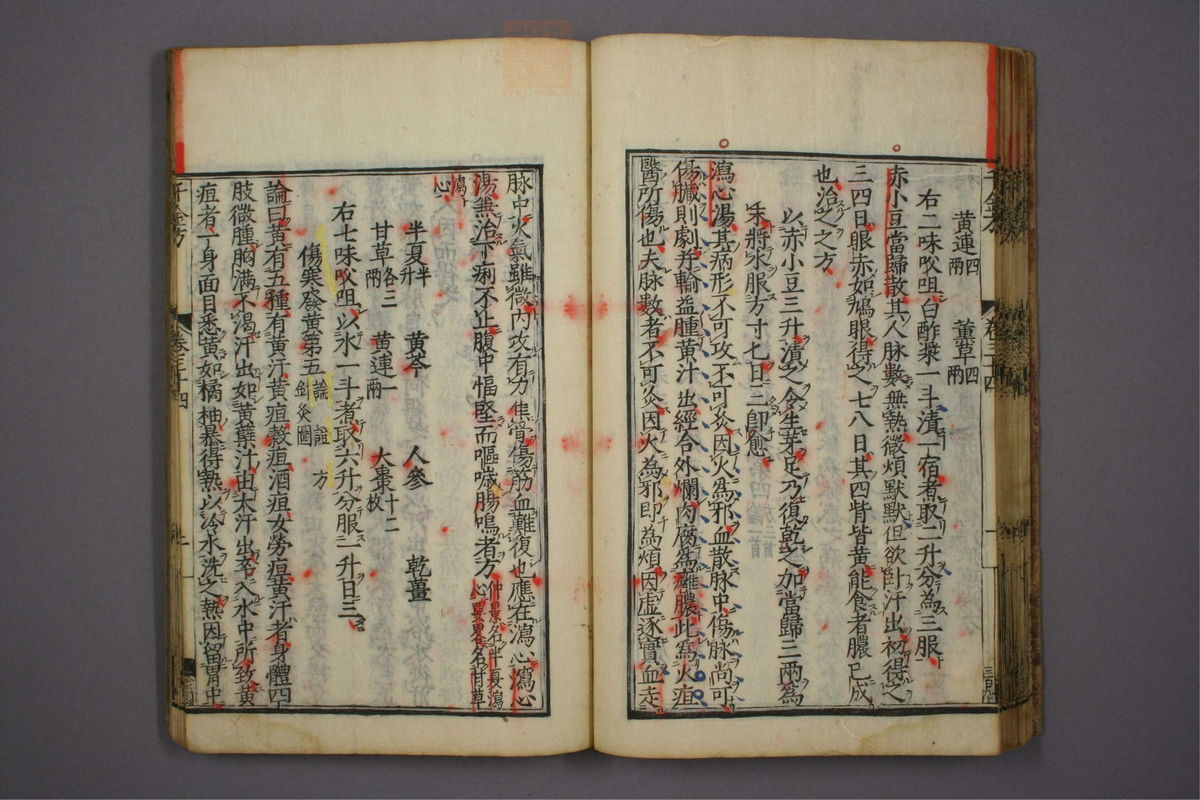 黃連四兩　薰草四兩
右二味㕮咀白酢漿一斗漬一宿煮取二升分為三服
赤小豆當歸散其人脉數無熱微煩默默但欲卧汗出初得之
三四日眼赤如鳩眼得之七八日其四眥皆黃能食者膿已成
也治之之方
以赤小豆三升漬之令生芽足乃復乾之加當歸三兩為
末將水服方寸七日三即愈
瀉心湯其病形不可攻不可灸因火為邪血散脉中傷脉尚可
傷臟則劇并輸益腫黃汁出經合外爛肉腐為癰膿此為火疽
醫所傷也夫脉數者不可灸因火為邪即為煩因虛逐實血走
脉中火氣雖微內攻有力焦骨傷筋血難復也應在瀉心瀉心
湯兼治下痢不止腹中愊堅而嘔噦腸鳴者方仲景名半夏瀉心要畧名甘草
瀉心
半夏半升　黃芩　人參　乾薑
甘草各三兩　黃連一兩　大棗十二枚
右七味㕮咀以水一斗煮取六升分服一升日三
傷寒發黃第五論　證　方
針灸圖
論曰黃有五種有黃汗黃疸穀疸酒疸女勞疸黃汗者身體四
肢微腫胸滿不渴汗出如黃蘗汁由大汗出卒入水中所致黃
疸者一身面目悉黃如橘柚暴得熱以冷水洗之熱因留胃中
千金方
卷三十四